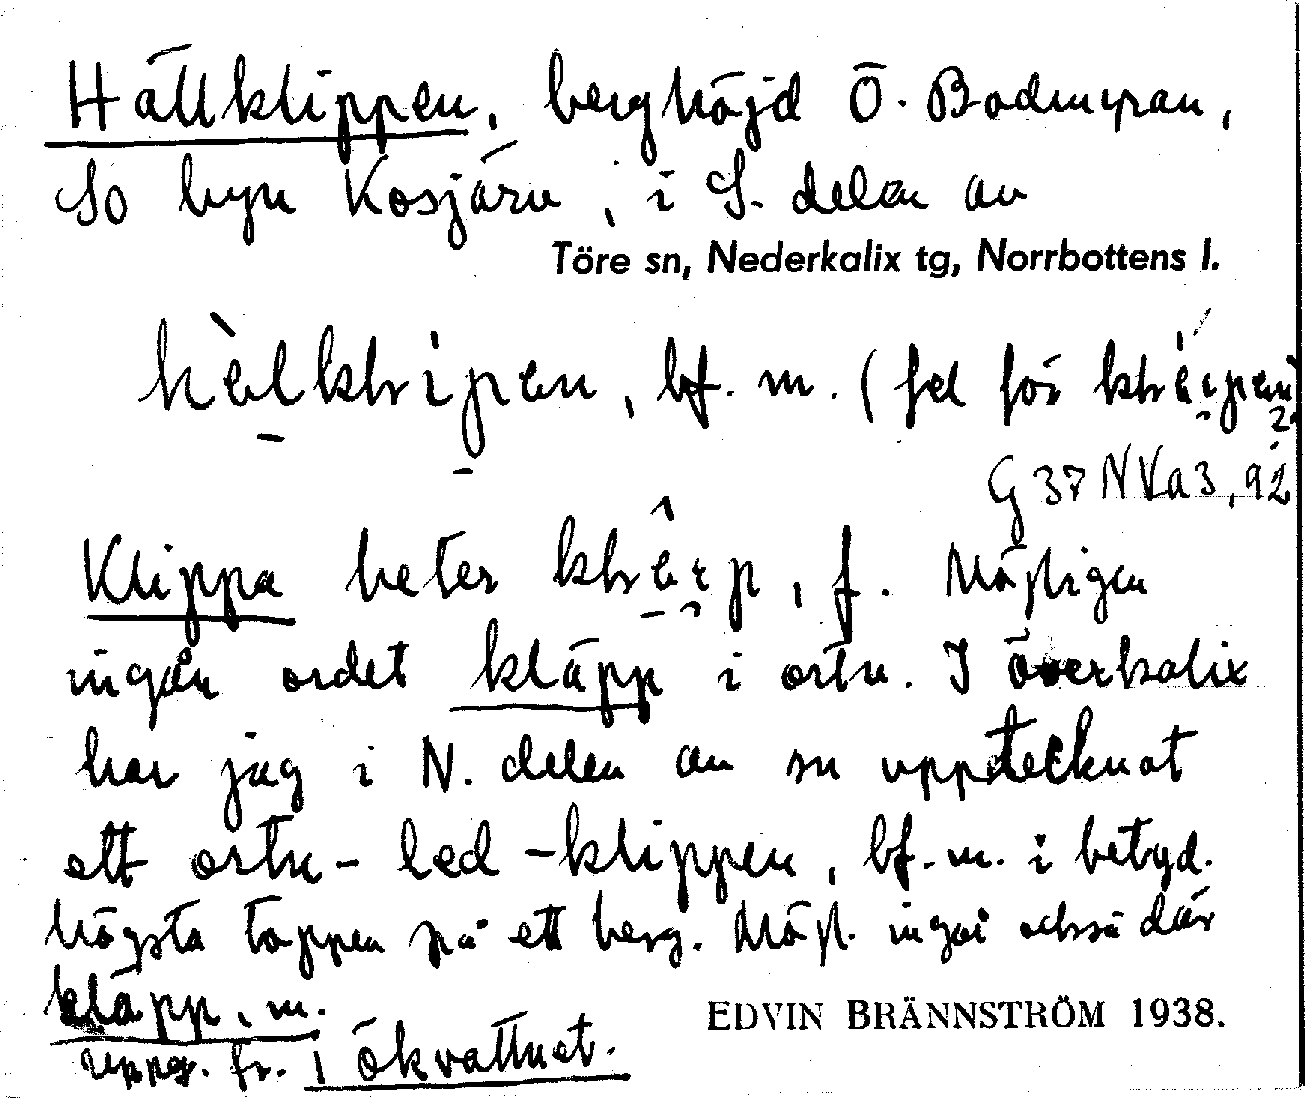 Hällklippen, berghöjd Ö. Bodmyran,
So byn Kosjärv, i S. delen av
Töre sn, Nederkalix tg, Norrbottens l.
hèlkłipen, bf. m. (fel för
G 37 N Va 3, 92
Klippa heter , f. Möjligen
ingår ordet kläpp i ortn. I överkalix
har jag i N. delen av sn upptecknat
ett ortn-led -klippen, bf. m. i betyd.
högsta toppen på ett berg. Möjl. ingår också där
kläpp, m.
EDVIN BRÄNNSTRÖM 1938.
uppg. fr. i ökvattnet.